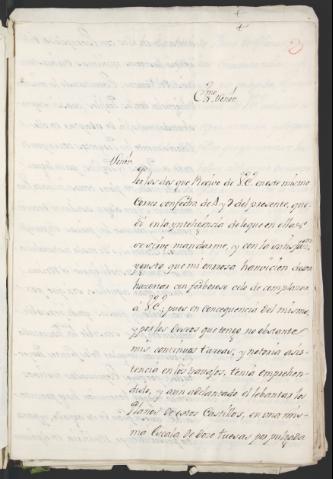 2
Exmo. Señor.
Señor
Por las dos que Recivo de V.E. en este mismo
Correo confecha de 4 y 7 del presente, que
dè en la ynteligencia de lo que en ellas
se sirve mandarme, y con la satisfaccon.
que mi
hacerias con fervoroso celo de complacer
â V.E.; pues en Concequencia del mismo,
y por los Deceos que tengo no obstante
mis continuas tareas, y notoria asis-
tencia en los travajos, tenia emprehen-
dido, y aun adelantado el lebantar los
Planos de estos Castillos, en una mis-
ma Escala de Doze tuesas por pulgada